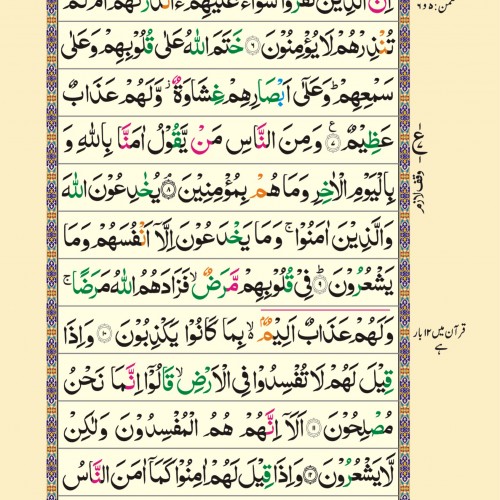 اِنَّ الَّذِيْنَ كَفَرُوْا سَوَآءٌ عَلَيْهِمْ ءَاَنْذَرْتَهُمْ اَمْ لَمْ
تُنْذِرْهُمْ لَا يُؤْمِنُوْنَ ۝٦ خَتَمَ اللّٰهُ عَلٰى قُلُوْبِهِمْ وَعَلٰى
سَمْعِهِمْ ؕ وَعَلٰٓى اَبْصَارِهِمْ غِشَاوَةٌ ز وَّلَهُمْ عَذَابٌ
عَظِيْمٌ ۝٧ ع وَمِنَ النَّاسِ مَنْ يَّقُوْلُ اٰمَنَّا بِاللّٰهِ وَ
بِالْيَوْمِ الْاٰخِرِ وَمَا هُمْ بِمُؤْمِنِيْنَ ۝٨ م يُخٰدِعُوْنَ اللّٰهَ
وَالَّذِيْنَ اٰمَنُوْا ۚ وَمَا يَخْدَعُوْنَ اِلَّآ اَنْفُسَهُمْ وَمَا
يَشْعُرُوْنَ ۝٩ ؕ فِيْ قُلُوْبِهِمْ مَّرَضٌ ۙ فَزَادَهُمُ اللّٰهُ مَرَضًا ۚ
وَلَهُمْ عَذَابٌ اَلِيْمٌۢ ۙ بِمَا كَانُوْا يَكْذِبُوْنَ ۝١٠ وَاِذَا
قِيْلَ لَهُمْ لَا تُفْسِدُوْا فِي الْاَرْضِ ۙ قَالُوْٓا اِنَّمَا نَحْنُ
مُصْلِحُوْنَ ۝١١ اَلَآ اِنَّهُمْ هُمُ الْمُفْسِدُوْنَ وَلٰكِنْ
لَّا يَشْعُرُوْنَ ۝١٢ وَاِذَا قِيْلَ لَهُمْ اٰمِنُوْا كَمَآ اٰمَنَ النَّاسُ
ع
وقف لازم
قرآن میں ١٢ بار
ہے